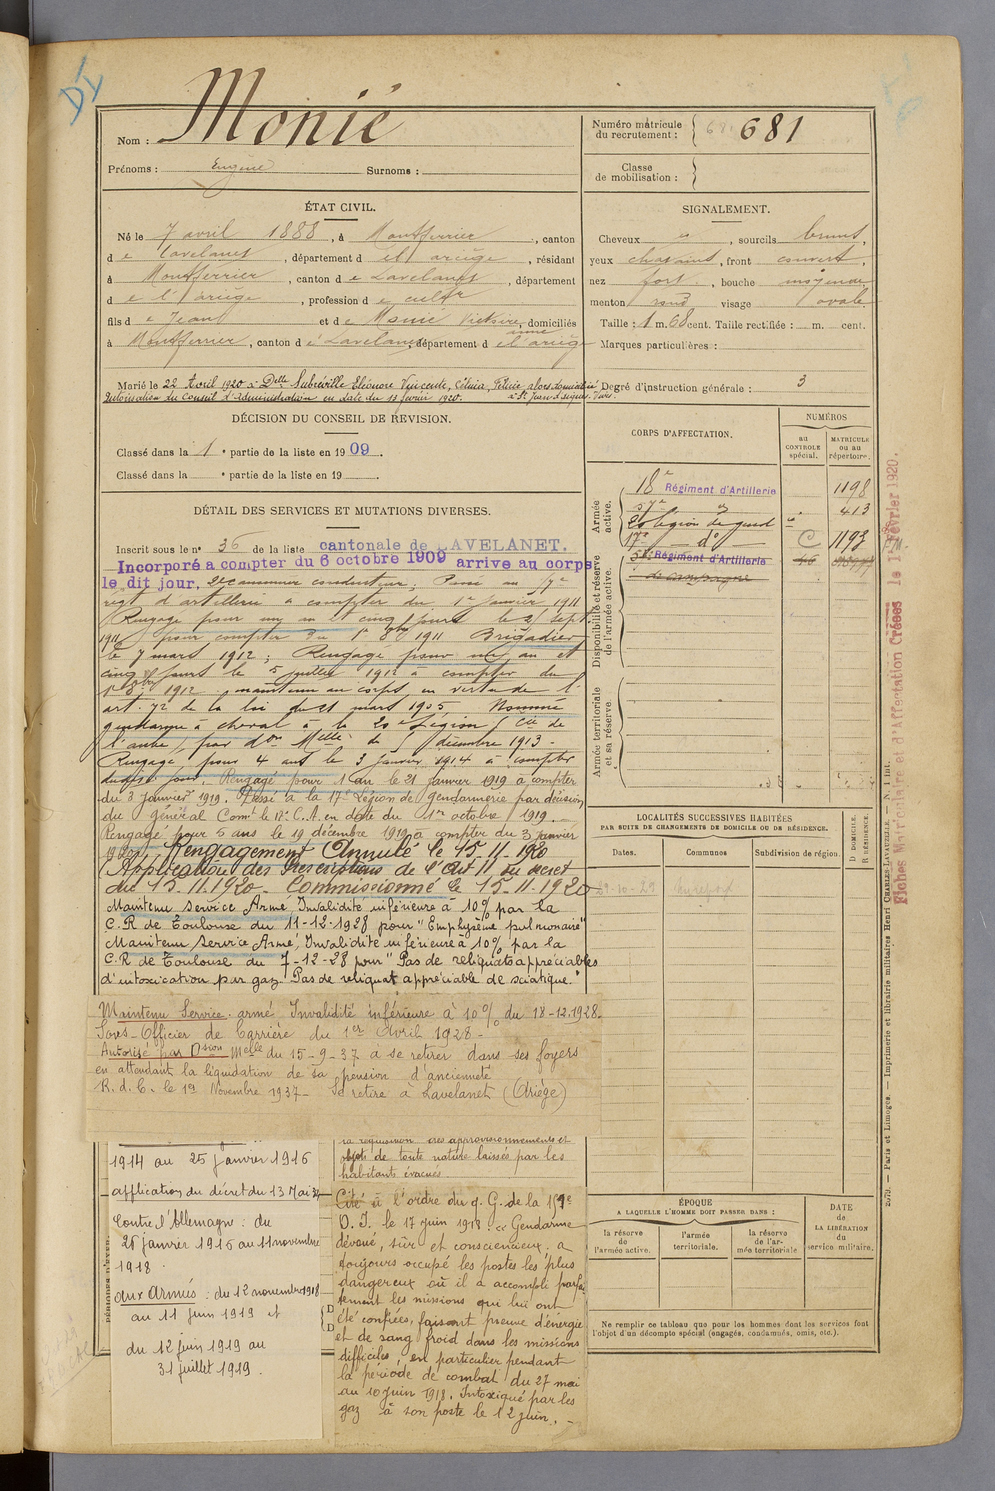 DI
Nom : Monié
Prénoms : Eugène Surnoms :
Numéro matricule
du recrutement : 681
Classe
de mobilisation :
ÉTAT CIVIL.
Né le 7 avril 1888, à Montferrier, canton
d e Lavelanet, département d e l'ariège, résidant
à Montferrier, canton d e Lavelanet, département
d e l'ariège, profession d e cultr
fils d e Jean et d e Monié Victoire, domiciliés
anne
à Montferrier, canton d e Lavelanet, département d e l'ariège
Marié le 22 Avril 1920 à Delle Subreville Eléonore Vincente, Félicie, alors domiciliée
Autorisation du Conseil d'Administration en date du 13 février 1920. à St Jean d'Aigues-Vives.
SIGNALEMENT.
Cheveux et, sourcils bruns,
yeux chatains, front couvert,
nez fort, bouche moyenne
menton rond visage ovale
Taille : 1 m. 68 cent. Taille rectifiée : m. cent.
Marques particulières :
Degré d'instruction générale : 3
DÉCISION DU CONSEIL DE REVISION.
Classé dans la 1 e partie de la liste en 1909.
Classé dans la e partie de la liste en 19
DÉTAIL DES SERVICES ET MUTATIONS DIVERSES.
Inscrit sous le n° 36 de la liste cantonale de LAVELANET.
Incorporé a compter du 6 octobre 1909 arrive au corps
le dit jour, 2e canonnier conducteur. Passé au 57e
régt d'artillerie à compter du 1er janvier 1911
Rengagé pour un an et cinq jours le 21 sept.
1911 pour compter du 1er 8bre 1911 Brigadier
le 7 mars 1912; Rengagé pour un an et
cinq jours le 5 juillet 1912 à compter du
1er 8bre 1912, maintenu au corps, en vertu de l'
art. 72 de la loi du 21 mars 1905. Nommé
gendarme à cheval à la 20e Légion, Cie de
l'aube, par don Melle du décembre 1913 -
Rengagé pour 4 ans le 3 janvier 1914 à compter
dudit jour. Rengagé pour 1 an le 21 janvier 1919 à compter
du 3 janvier 1919. Passé à la 17e Légion de Gendarmerie par décision
du général Comt le 17e C.A. en date du 1er octobre 1919.
Rengagé pour 5 ans le 19 décembre 1919 à compter du 3 janvier
1920. Rengagement Annulé le 15.11.1920
Application des Prescriptions de l'Art 11 du décret
du 15.11.1920 - Commissionné le 15-11-1920
Maintenu Service Armé, Invalidité inférieure à 10% par la
C.R de Toulouse du 11-12-1928 pour "Emphysème pulmonaire"
Maintenu Service Armé, Invalidité inférieure à 10% par la
C.R de Toulouse du 7-12-28 pour "Pas de reliquats appréciables
d'intoxication par gaz - Pas de reliquat appréciable de sciatique."
Maintenu Service armé Invalidité inférieure à 10% du 18-12.1928-
Sous-Officier de Carrière du 1er Avril 1928 -
Autorisé par Dsion Melle du 15-9-37 à se retirer dans ses foyers
en attendant la liquidation de sa pension d'ancienneté
R.d.C. le 1er Novembre 1937 - Se retire à Lavelanet (Ariège)
1914 au 25 janvier 1916
application du décret du 13 Mai 34
Contre l'Allemagne : du
26 janvier 1916 au 11 novembre
1918.
aux Armées : du 12 novembre 1918
au 11 juin 1919 et
du 12 juin 1919 au
31 juillet 1919.
la réquisition des approvisionnements et
objets de toute nature laissés par les
habitants évacués
Cité à l'ordre du q.G. de la 157e
D.I. le 17 juin 1918: « Gendarme
dévoué, sûr et consciencieux. a
toujours occupé les postes les plus
dangereux où il a accompli parfai
tement les missions qui lui ont
été confiées, faisant preuve d'énergie
et de sang froid dans les missions
difficiles, en particulier pendant
la période de combat du 27 mai
au 10 juin 1918. Intoxiqué par les
gaz à son poste le 12 juin. -
CORPS D'AFFECTATION.
NUMÉROS
au
CONTROLE
spécial.
MATRICULE
ou au
répertoire.
Armée
active.
18e Régiment d'Artillerie 1198
57e d° 413
20e légion de gend
17e - d° - C 1193
Régiment d'Artillerie
de campagne
Disponibilité et réserve
de l'armée active.
Armée territoriale
et sa réserve
LOCALITÉS SUCCESSIVES HABITÉES
PAR SUITE DE CHANGEMENTS DE DOMICILE OU DE RÉSIDENCE.
Dates. Communes Subdivision de région. D DOMICILE.
R RÉSIDENCE.
29-10-29 Mirepoix
ÉPOQUE
A LAQUELLE L'HOMME DOIT PASSER DANS :
la réserve
de
l'armée active.
l'armée
territoriale.
la réserve
de l'ar-
mée territoriale
DATE
de
LA LIBÉRATION
du
service militaire.
Ne remplir ce tableau que pour les hommes dont les services font
l'objet d'un décompte spécial (engagés, condamnés, omis, etc.).
Fiches Matriculaire et d'Affectation Créées le 1 Février 1920.
Paris et Limoges. — Imprimerie et librairie militaires Henri CHARLES-LAVAUZELLE.